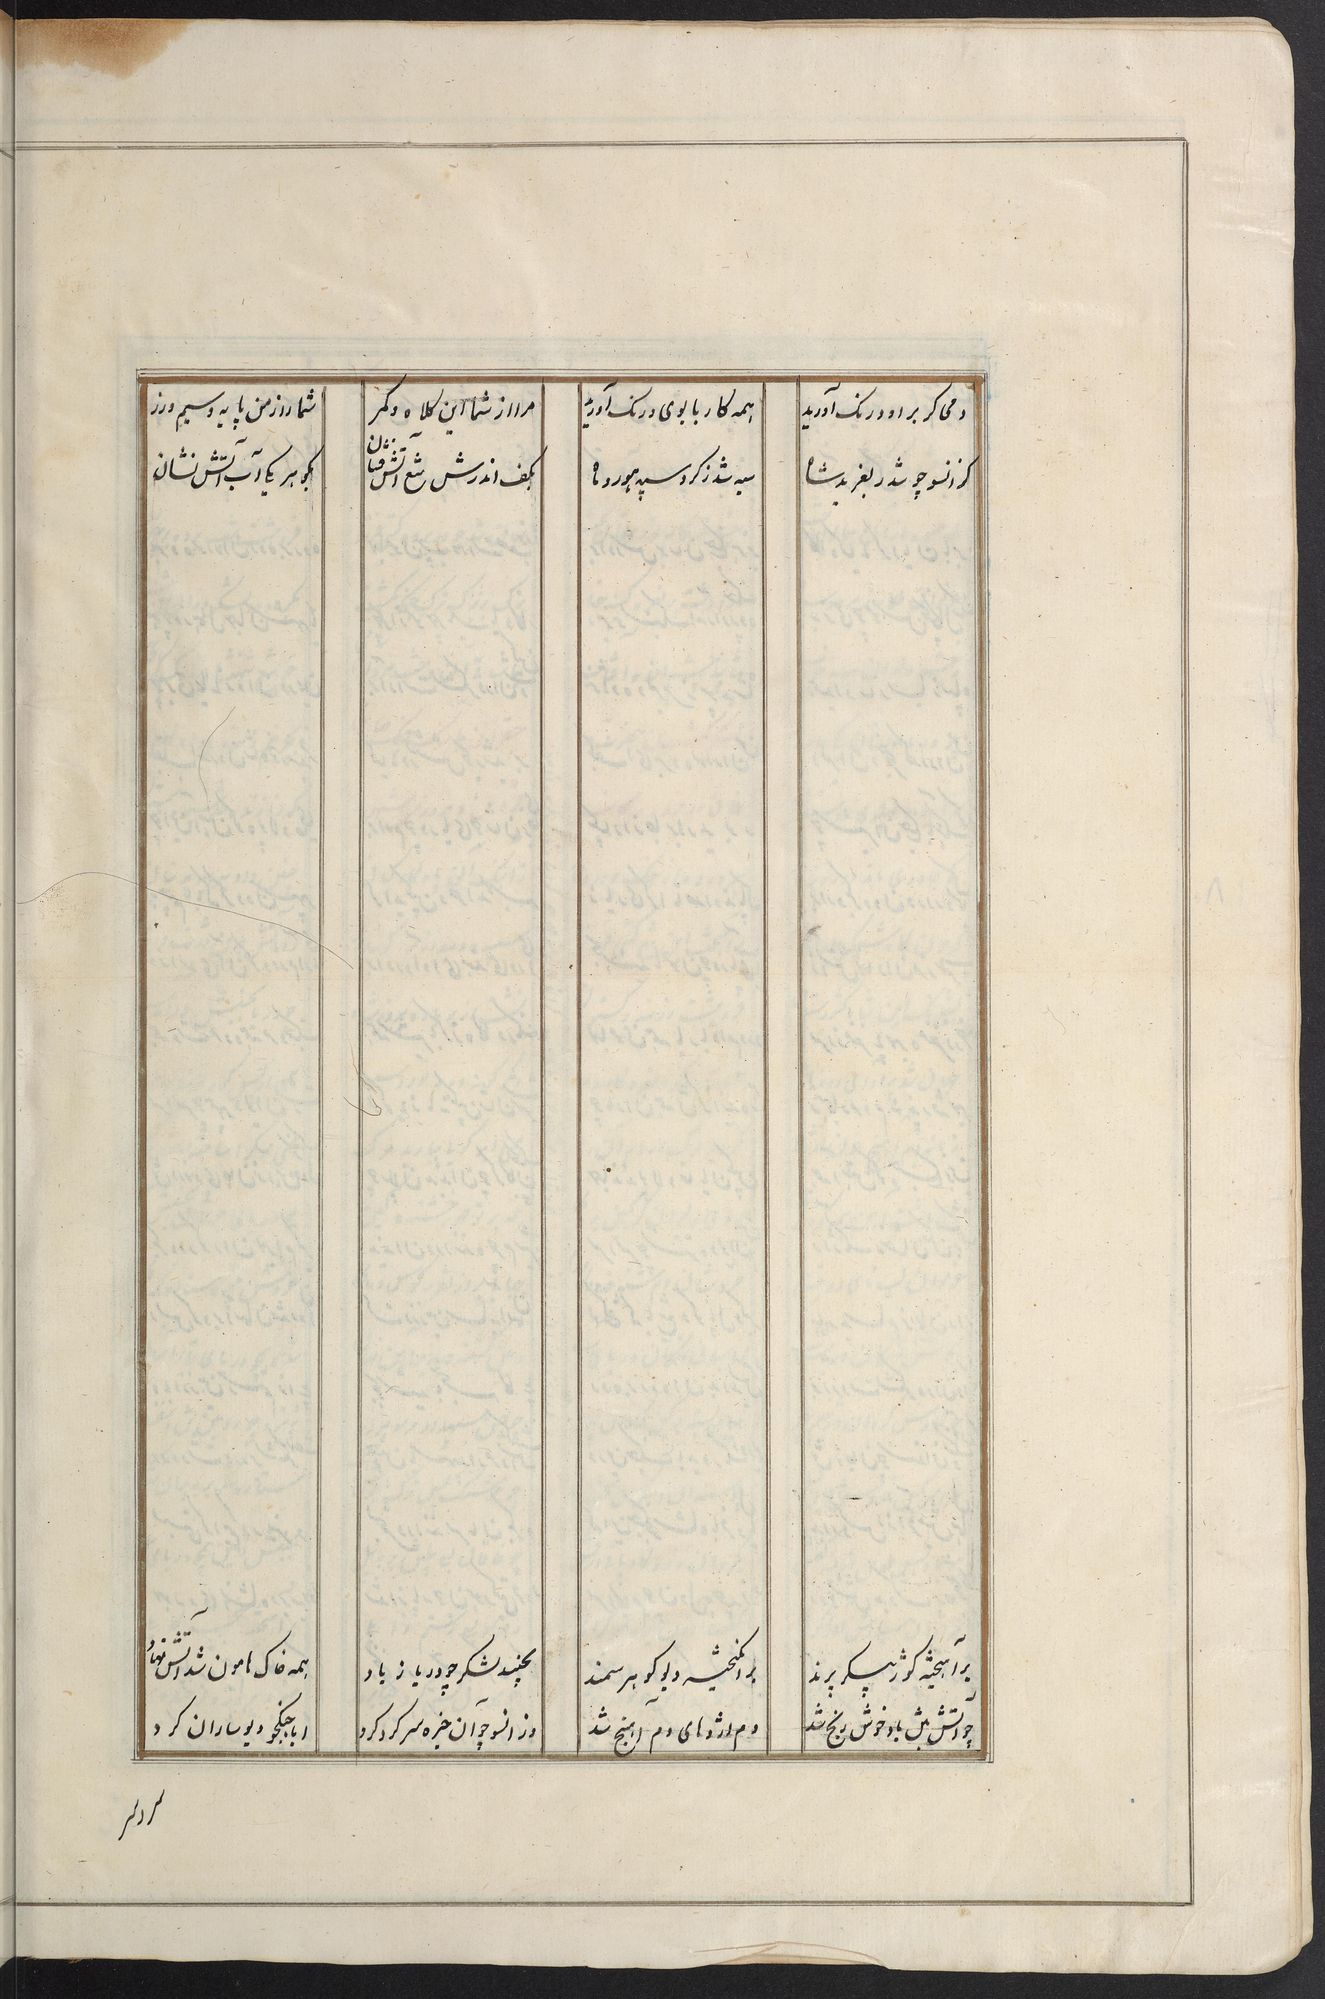 دمی گر بر او درنگ آورید همه کار با بوی و رنگ آورید مرا از شما این کلاه و کمر شما را ز من پایه و سیم و زر
کزانسو چو شد بغرید شاه سیه شد ز گرد سپه هور و ماه بکف اندرش تیغ آتش فشان بگوهر یکی آب آتش نشان
برآهیخته گرز پیکر پرند برانگیخته دیو گوهر سمند بجنبید لشکر چو دریا ز باد همه خاک هامون شد آتش نهاد
چو آتش پیش باد خوش رنج شد دم اژدهای دم آهنج شد وزانسو چو آن خیره سر گرد کرد ابا جنگجو دیوساران کرد